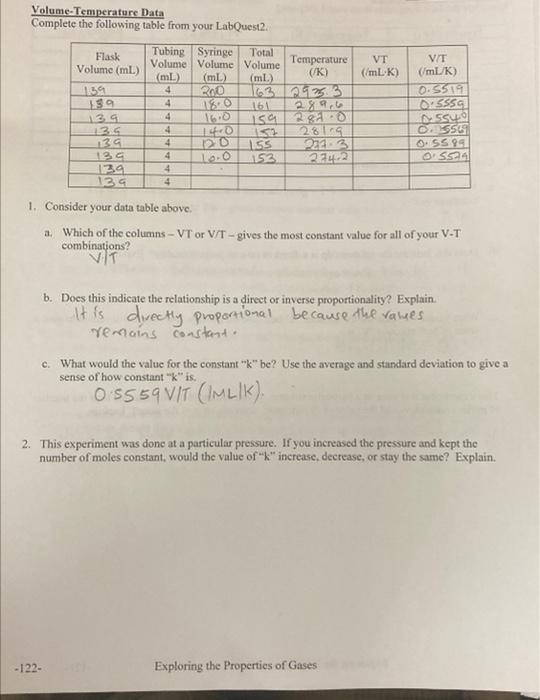 Volume-Temperature Data
Complete the following table from your LabQuest2.
Flask Volume (mL) Tubing Volume (mL) Syringe Volume (mL) Total Volume (mL) Temperature (/K) VT (/mL·K) V/T (/mL/K)
139 4 20.0 163 295.3 0.5519
139 4 18.0 161 289.6 0.5559
139 4 16.0 159 287.0 0.5540
139 4 14.0 157 281.9 0.5569
139 4 12.0 155 277.3 0.5589
139 4 10.0 153 274.2 0.5579
139 4
139 4
1. Consider your data table above.
a. Which of the columns – VT or V/T – gives the most constant value for all of your V-T
combinations?
V/T
b. Does this indicate the relationship is a direct or inverse proportionality? Explain.
It is directly proportional because the values
remains constant.
c. What would the value for the constant "k" be? Use the average and standard deviation to give a
sense of how constant "k" is.
0.5559 V/T (/mL/K).
2. This experiment was done at a particular pressure. If you increased the pressure and kept the
number of moles constant, would the value of "k" increase, decrease, or stay the same? Explain.
-122- Exploring the Properties of Gases